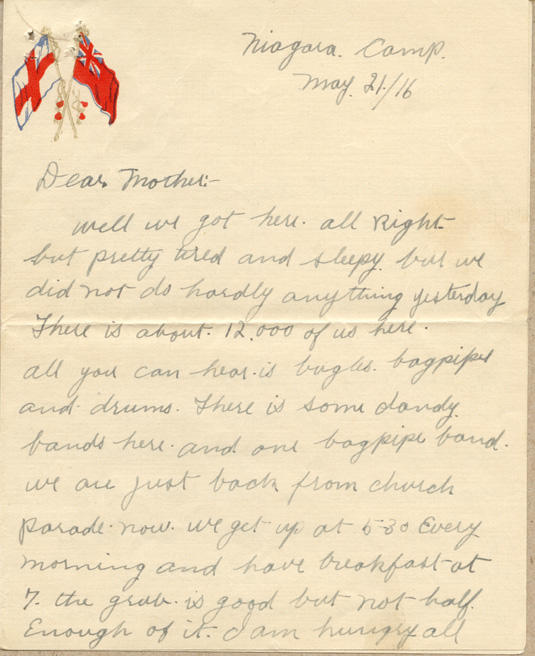 Niagara. Camp.
May. 21/16
Dear Mother:-
Well we got here. all Right
but pretty tired and sleepy. but we
did not do hardly anything yesterday
There is about. 12.000 of us here.
all you can hear. is bugles. bagpipes
and. drums. There is some dandy.
bands here. and one bagpipe band.
we are just back from church
parade. now. we get up at 5-30 Every
morning and have breakfast at
7. the grub. is good but not half.
Enough of it. I am hungry all